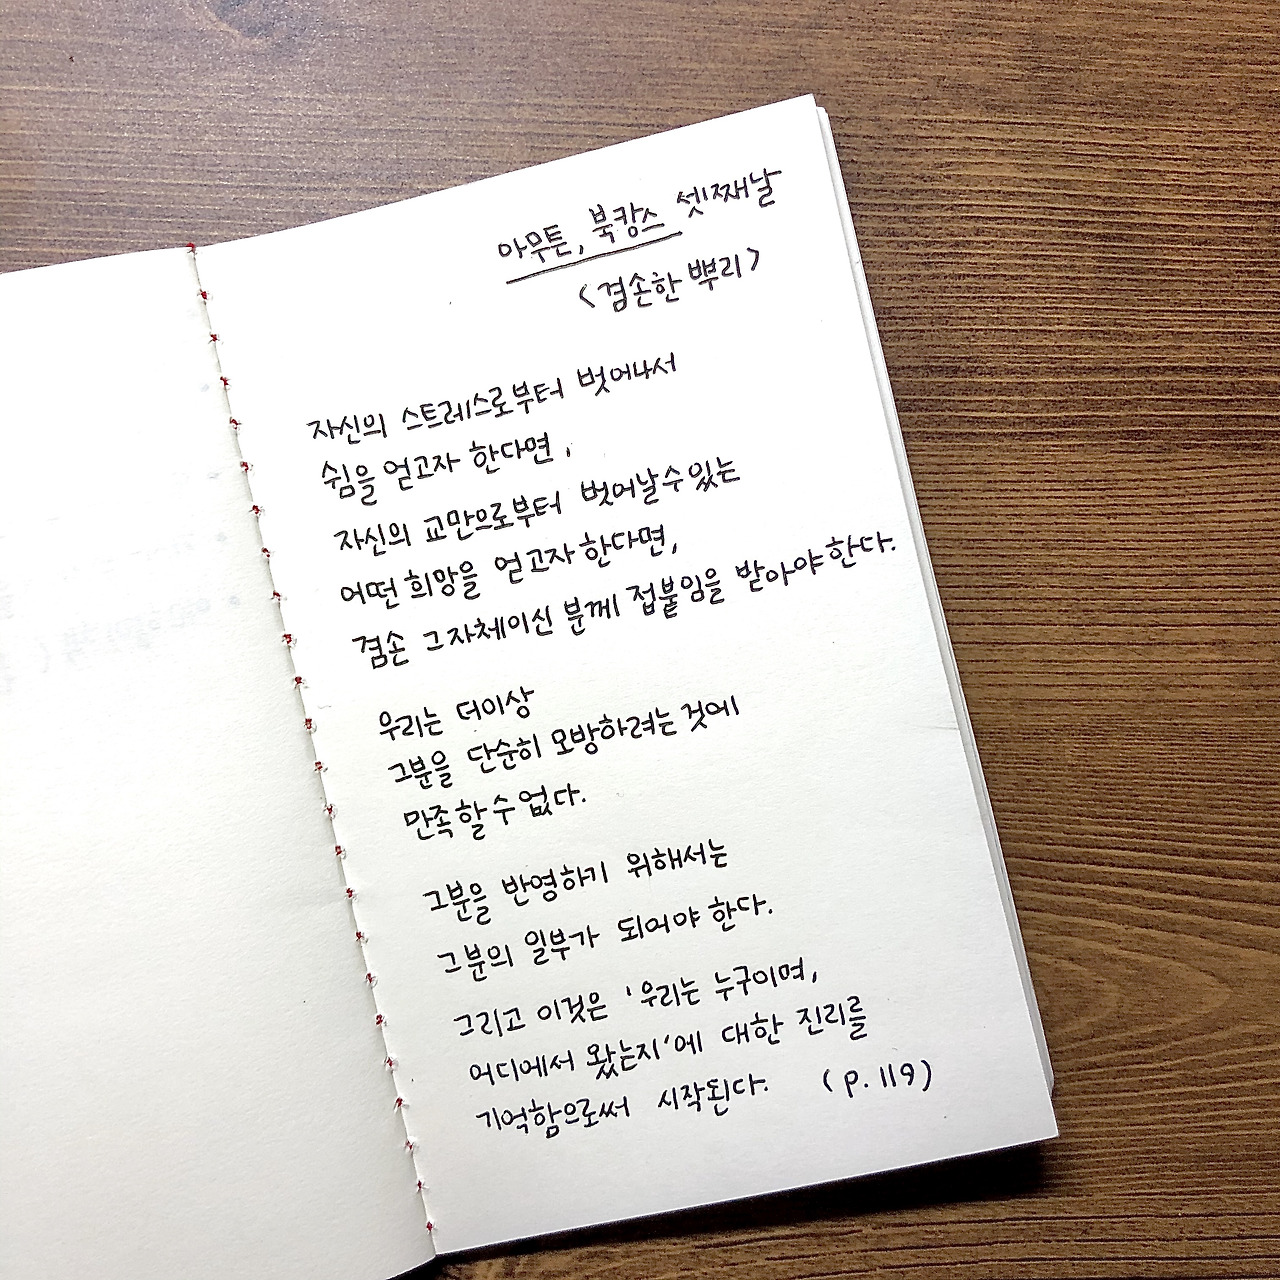 아무튼, 북캉스 셋째날
<겸손한 뿌리>
자신의 스트레스로부터 벗어나서
쉼을 얻고자 한다면,
자신의 교만으로부터 벗어날 수 있는
어떤 희망을 얻고자 한다면,
겸손 그 자체이신 분께 접붙임을 받아야 한다.
우리는 더이상
그분을 단순히 모방하려는 것에
만족할 수 없다.
그분을 반영하기 위해서는
그분의 일부가 되어야 한다.
그리고 이것은 '우리는 누구이며,
어디에서 왔는지'에 대한 진리를
기억함으로써 시작된다. (p.119)